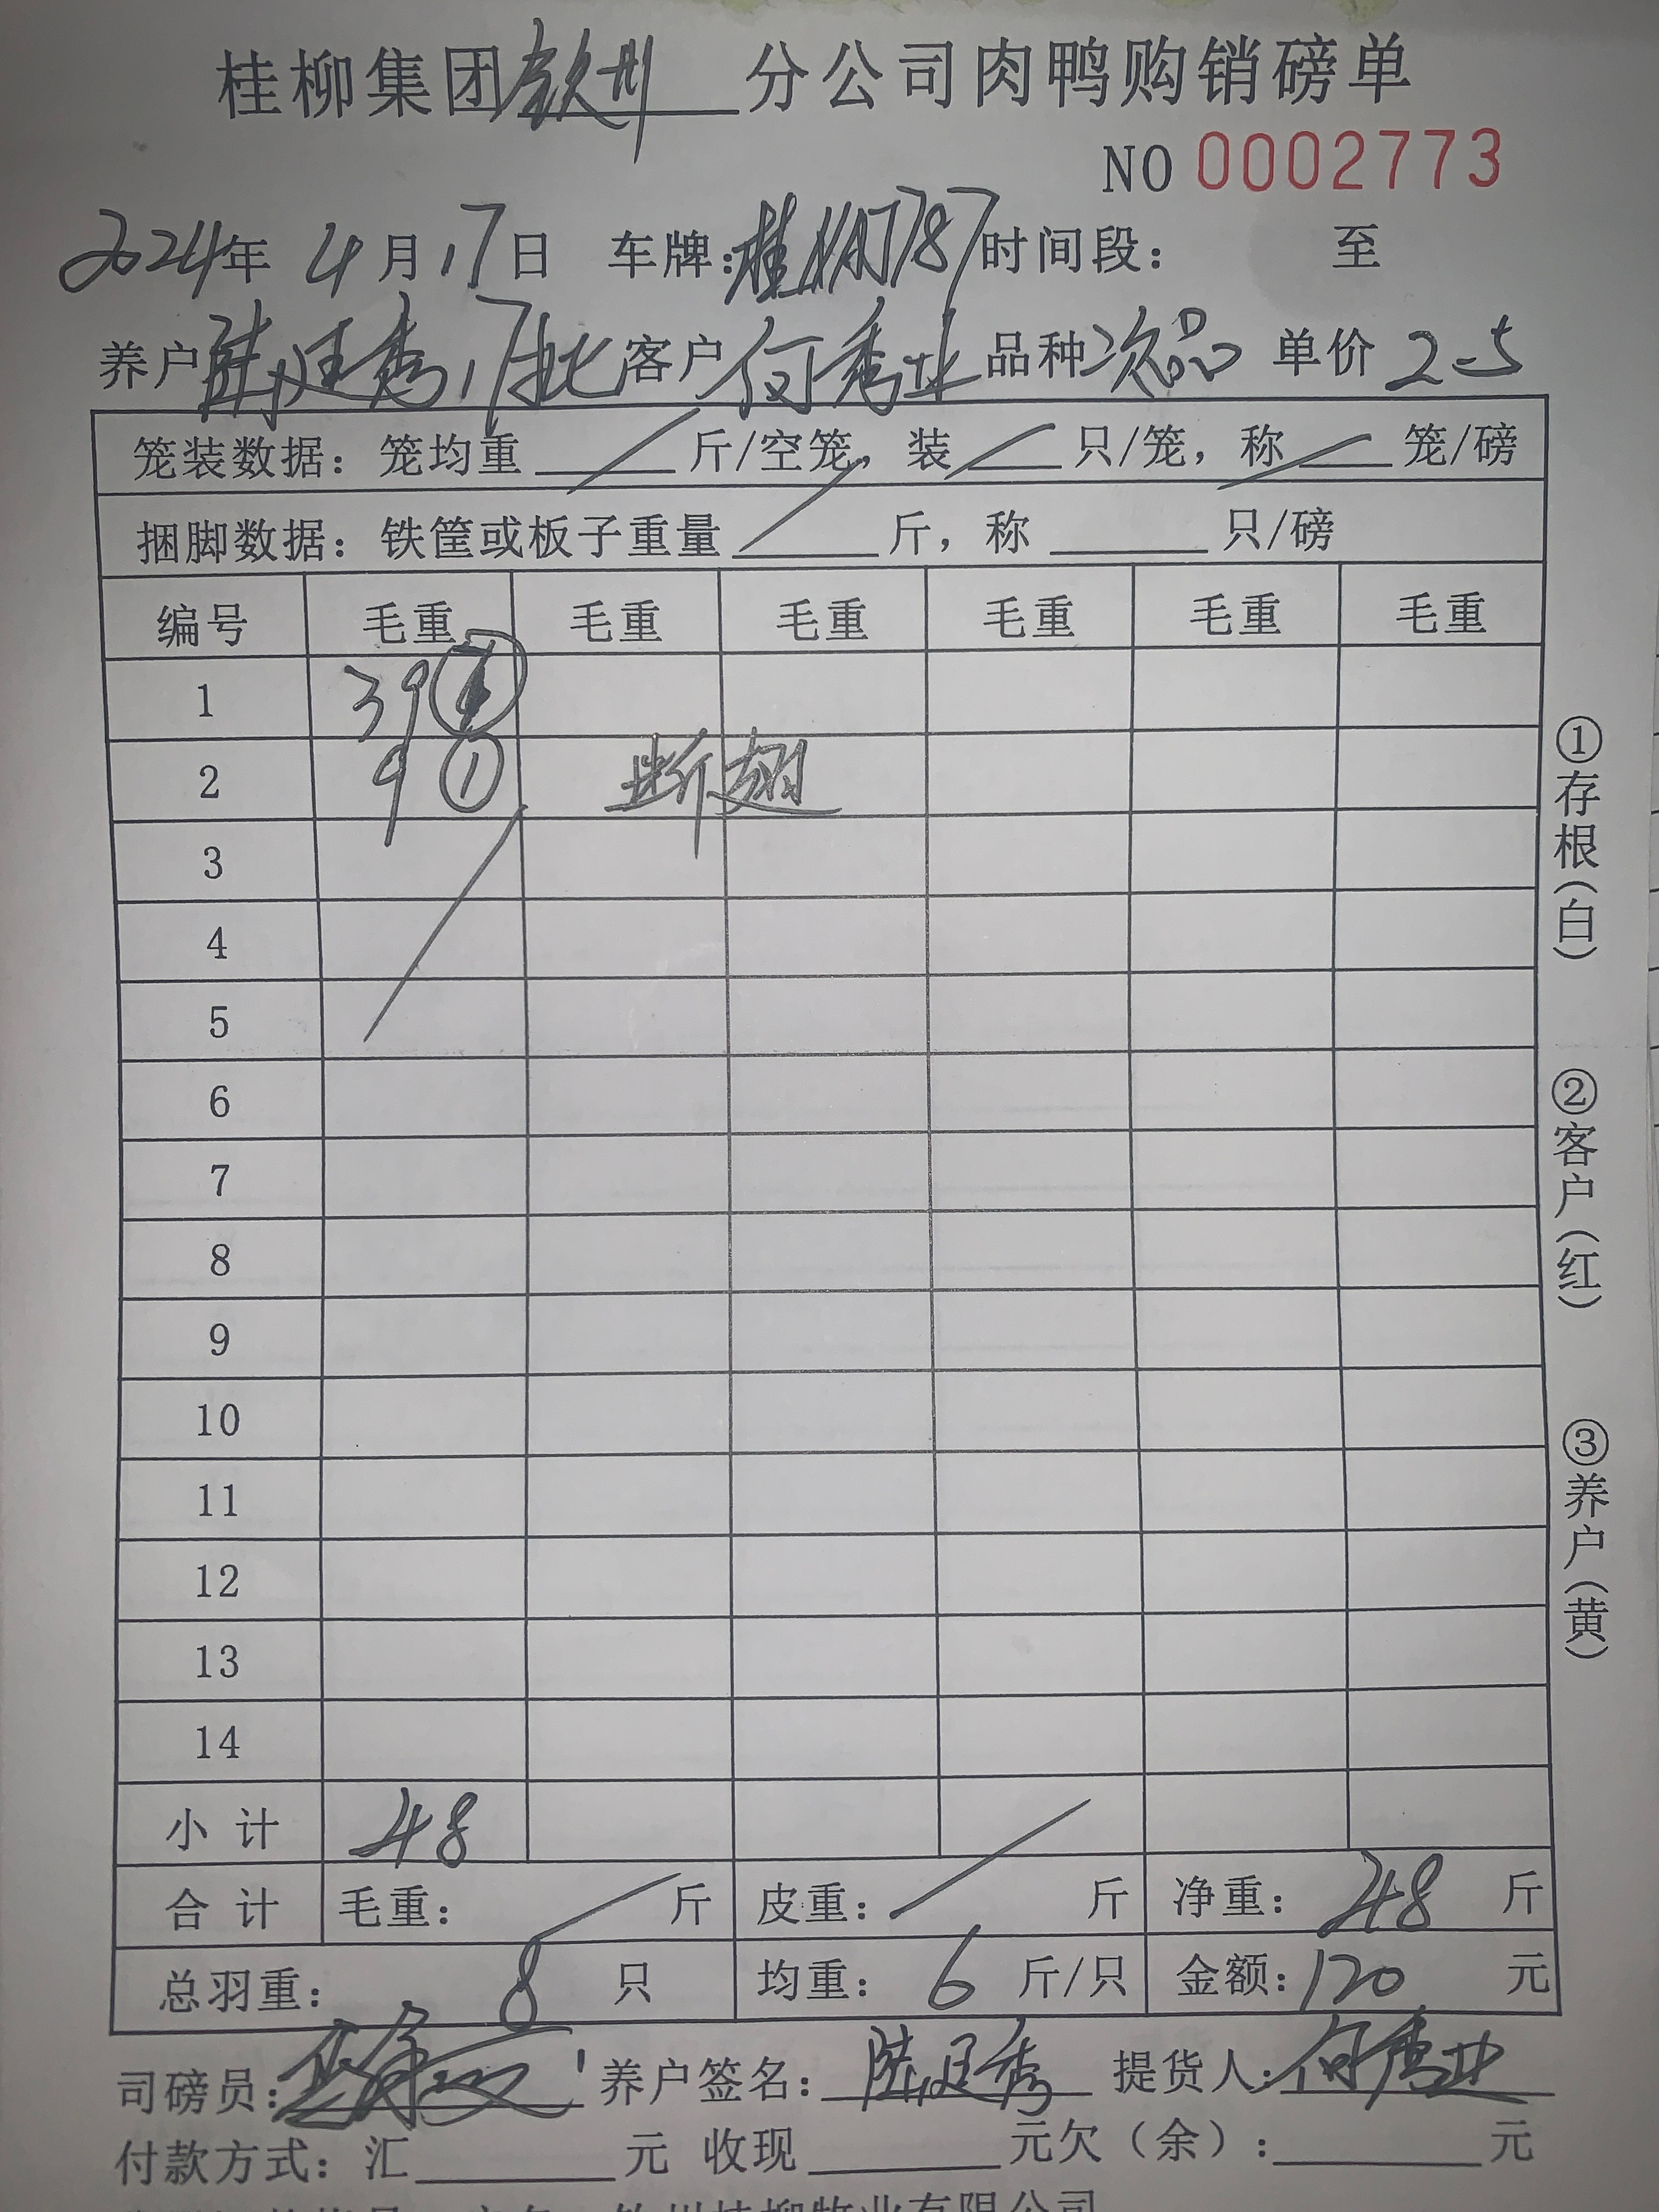 桂柳集团钦州分公司肉鸭购销磅单
NO 0002773
2024年 4月 17日 车牌: 时间段: 至
养户陆廷秀17批客户何秀业品种次品 单价 2-5
笼装数据: 笼均重 斤/空笼, 装 只/笼, 称 笼/磅
捆脚数据: 铁筐或板子重量 斤, 称 只/磅
编号 毛重 毛重 毛重 毛重 毛重 毛重
1 39
2 9 ① 断翅
3
4
5
6
7
8
9
10
11
12
13
14
小 计 48
合 计 毛重: 斤 皮重: 斤 净重: 48 斤
总羽重: 8 只 均重: 6 斤/只 金额: 120 元
司磅员: 养户签名: 陆廷秀 提货人: 何秀业
付款方式: 汇 元 收现 元欠(余): 元
①存根(白)
②客户(红)
③养户(黄)